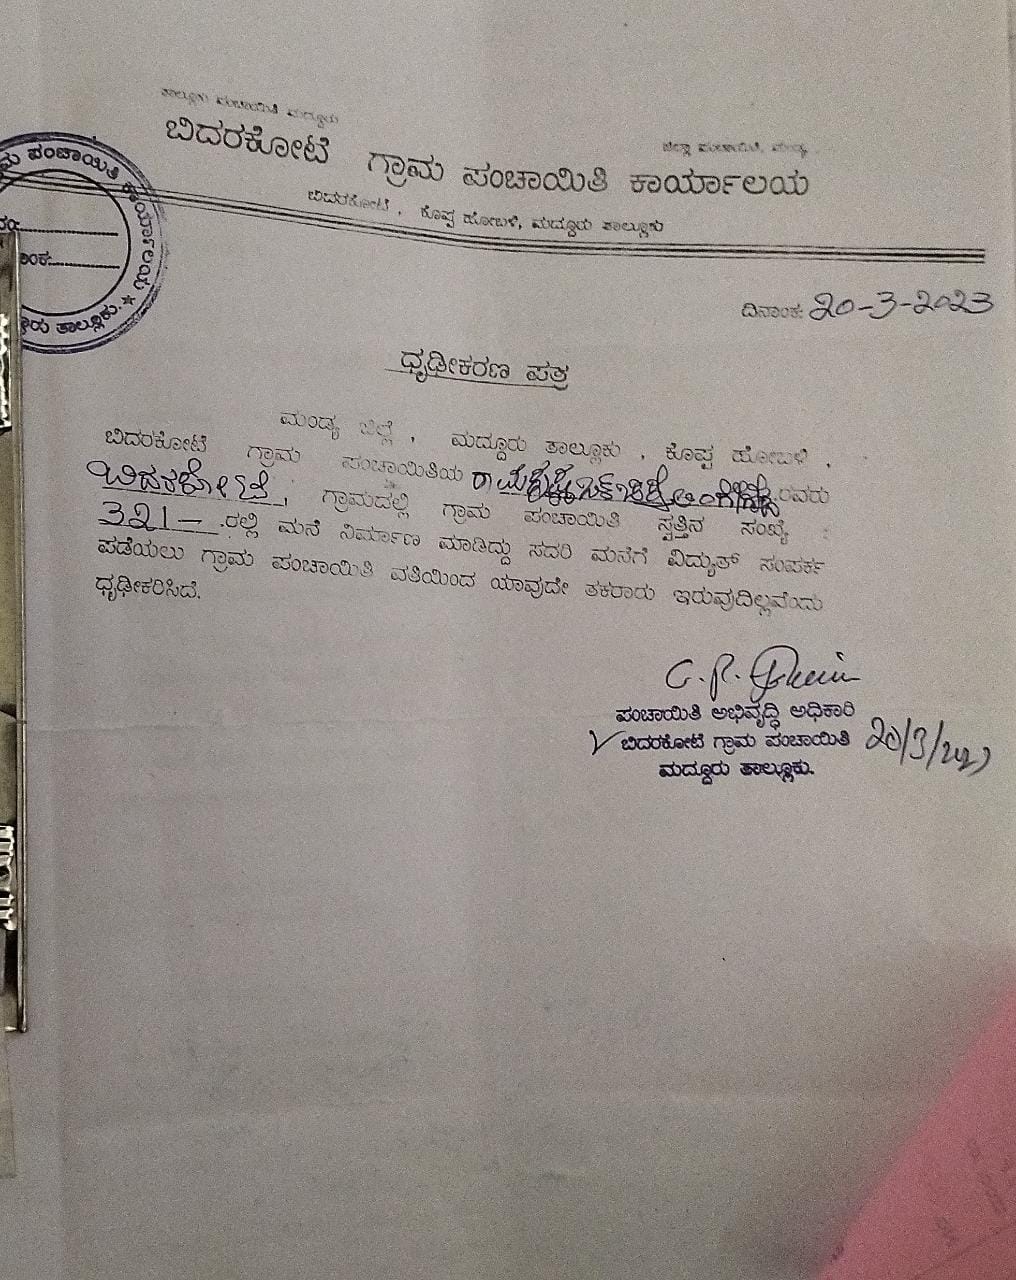 ತಾಲ್ಲೂಕು ಪಂಚಾಯಿತಿ ಮದ್ದೂರು
ಜಿಲ್ಲಾ ಪಂಚಾಯಿತಿ, ಮಂಡ್ಯ
ಬಿದರಕೋಟೆ ಗ್ರಾಮ ಪಂಚಾಯಿತಿ ಕಾರ್ಯಾಲಯ
ಬಿದರಕೋಟೆ, ಕೊಪ್ಪ ಹೋಬಳಿ, ಮದ್ದೂರು ತಾಲ್ಲೂಕು
ಪಂಚಾಯಿತಿ ಕಾರ್ಯಾಲಯ ★
ತಾಲ್ಲೂಕು.
ದಿನಾಂಕ: 20-3-2023
ಧೃಢೀಕರಣ ಪತ್ರ
ಮಂಡ್ಯ ಜಿಲ್ಲೆ, ಮದ್ದೂರು ತಾಲ್ಲೂಕು, ಕೊಪ್ಪ ಹೋಬಳಿ,
ಬಿದರಕೋಟೆ ಗ್ರಾಮ ಪಂಚಾಯಿತಿಯ ರವರು
ಬಿದರಕೋಟೆ, ಗ್ರಾಮದಲ್ಲಿ ಗ್ರಾಮ ಪಂಚಾಯಿತಿ ಸ್ವತ್ತಿನ ಸಂಖ್ಯೆ :
321- .ರಲ್ಲಿ ಮನೆ ನಿರ್ಮಾಣ ಮಾಡಿದ್ದು ಸದರಿ ಮನೆಗೆ ವಿದ್ಯುತ್ ಸಂಪರ್ಕ
ಪಡೆಯಲು ಗ್ರಾಮ ಪಂಚಾಯಿತಿ ವತಿಯಿಂದ ಯಾವುದೇ ತಕರಾರು ಇರುವುದಿಲ್ಲವೆಂದು
ಧೃಢೀಕರಿಸಿದೆ.
ಪಂಚಾಯಿತಿ ಅಭಿವೃದ್ಧಿ ಅಧಿಕಾರಿ
ಬಿದರಕೋಟೆ ಗ್ರಾಮ ಪಂಚಾಯಿತಿ 20/3/2023
ಮದ್ದೂರು ತಾಲ್ಲೂಕು.